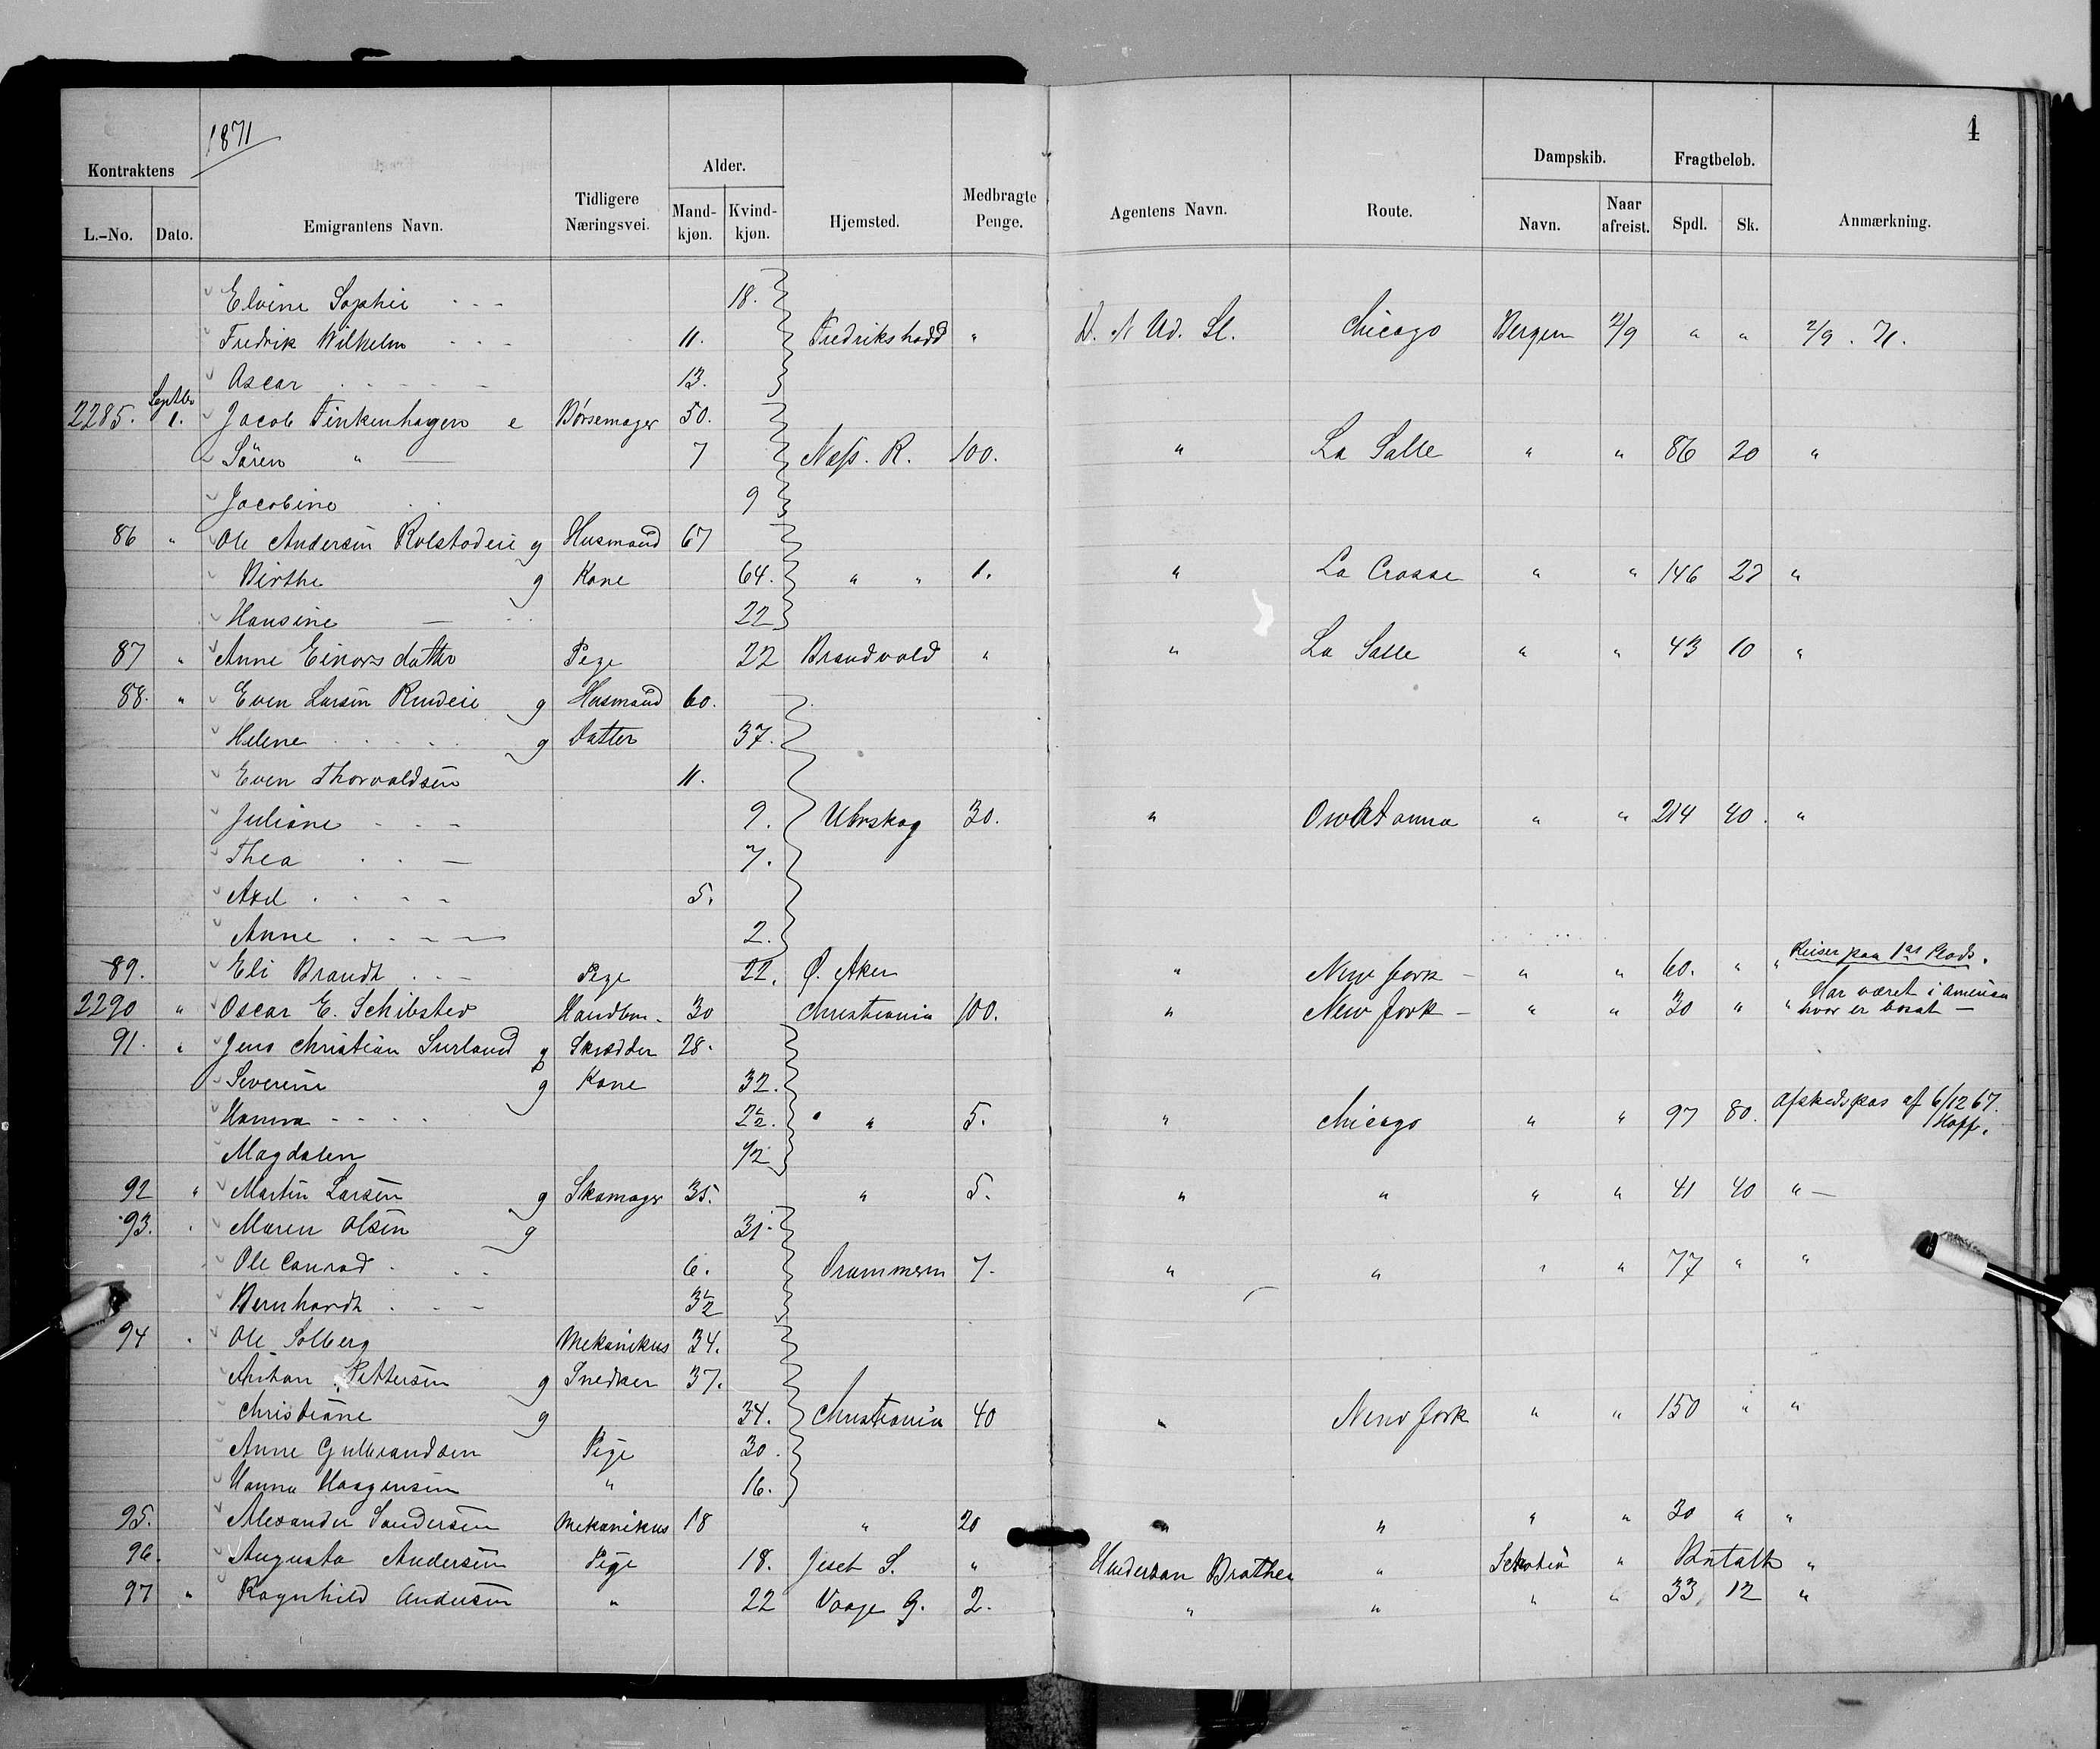 1871
4
Kontraktens Alder. Dampskib. Fragtbeløb.
L.-No. Dato. Emigrantens Navn. Tidligere Næringsvei. Mandkjøn. Kvindkjøn. Hjemsted. Medbragte Penge. Agentens Navn. Route. Navn. Naar afreist. Spdl. Sk. Anmærkning.
Elvine Sophie - - - 18.
Fredrik Wilhelm - - - 11. Fredrikshald " D. N Ud. Sl. Chicago Bergen 2/9 " " 2/9. 71.
Oscar 13.
2285. Septbr 1. Jacob Finkenhagen e Børsemager 50.
Sören " — 7 Næss. R. 100. " La Salle " " 86 20 "
Jacobine 9
86 " Ole Andersen Rolstadeie g Husmand 67
Birthe g Kone 64. " " 1. " La Crosse " " 146 22 "
Hansine — 22
87 " Anne Einarsdatter Pige 22 Brandvold " " La Salle " " 43 10 "
88. " Even Larsen Rudeie g Husmand 60.
Helene g Datter 37.
Even Thorvaldsen 11.
Juliane - - - 9. Urskog 30. " Owatonna " " 214 40. "
Thea . . — 7.
Axel . . - - 5.
Anne . - - - 2.
89. Eli Brandt . . - Pige 22. Ø. Aker " New York - " " 60. " " Reiser paa 1ste Plads.
2290 " Oscar E. Schibsted Handbm. 30 Christiania 100. " New York - " " 30 " " Har været i Amerika
hvor er bosat —
91. " Jens Christian Surland g Skrædder 28.
Severine g Kone 32.
Hanna - - - - 2½. " " 5. " Chicago " " 97 80. Afskedspas af 6/12 67.
Magdalen 1/2
92 " Martin Larsen g Skomager 35. " 5. " " " " 41 40 " —
93. " Maren Olsen g 31.
Ole Conrad . . . 6. Drammen 7. " " " " 77 " "
Bernhardt . - - 3½
94 " Ole Solberg Mekanikus 34.
Anton Pettersen g Snedker 37.
Christiane g 34. Christiania 40 " New York " " 150 " "
Anne Gulbrandsen Pige 30.
Hanna Haagensen " 16.
95. Alexander Sandersen Mekanikus 18 " 20 " " " " 30 " "
96. Augusta Andersen Pige 18. S. " Henderson Brothers " " "
97 " Ragnhild Andersen " 22 Vaage G. 2. " " " " 33 12 "